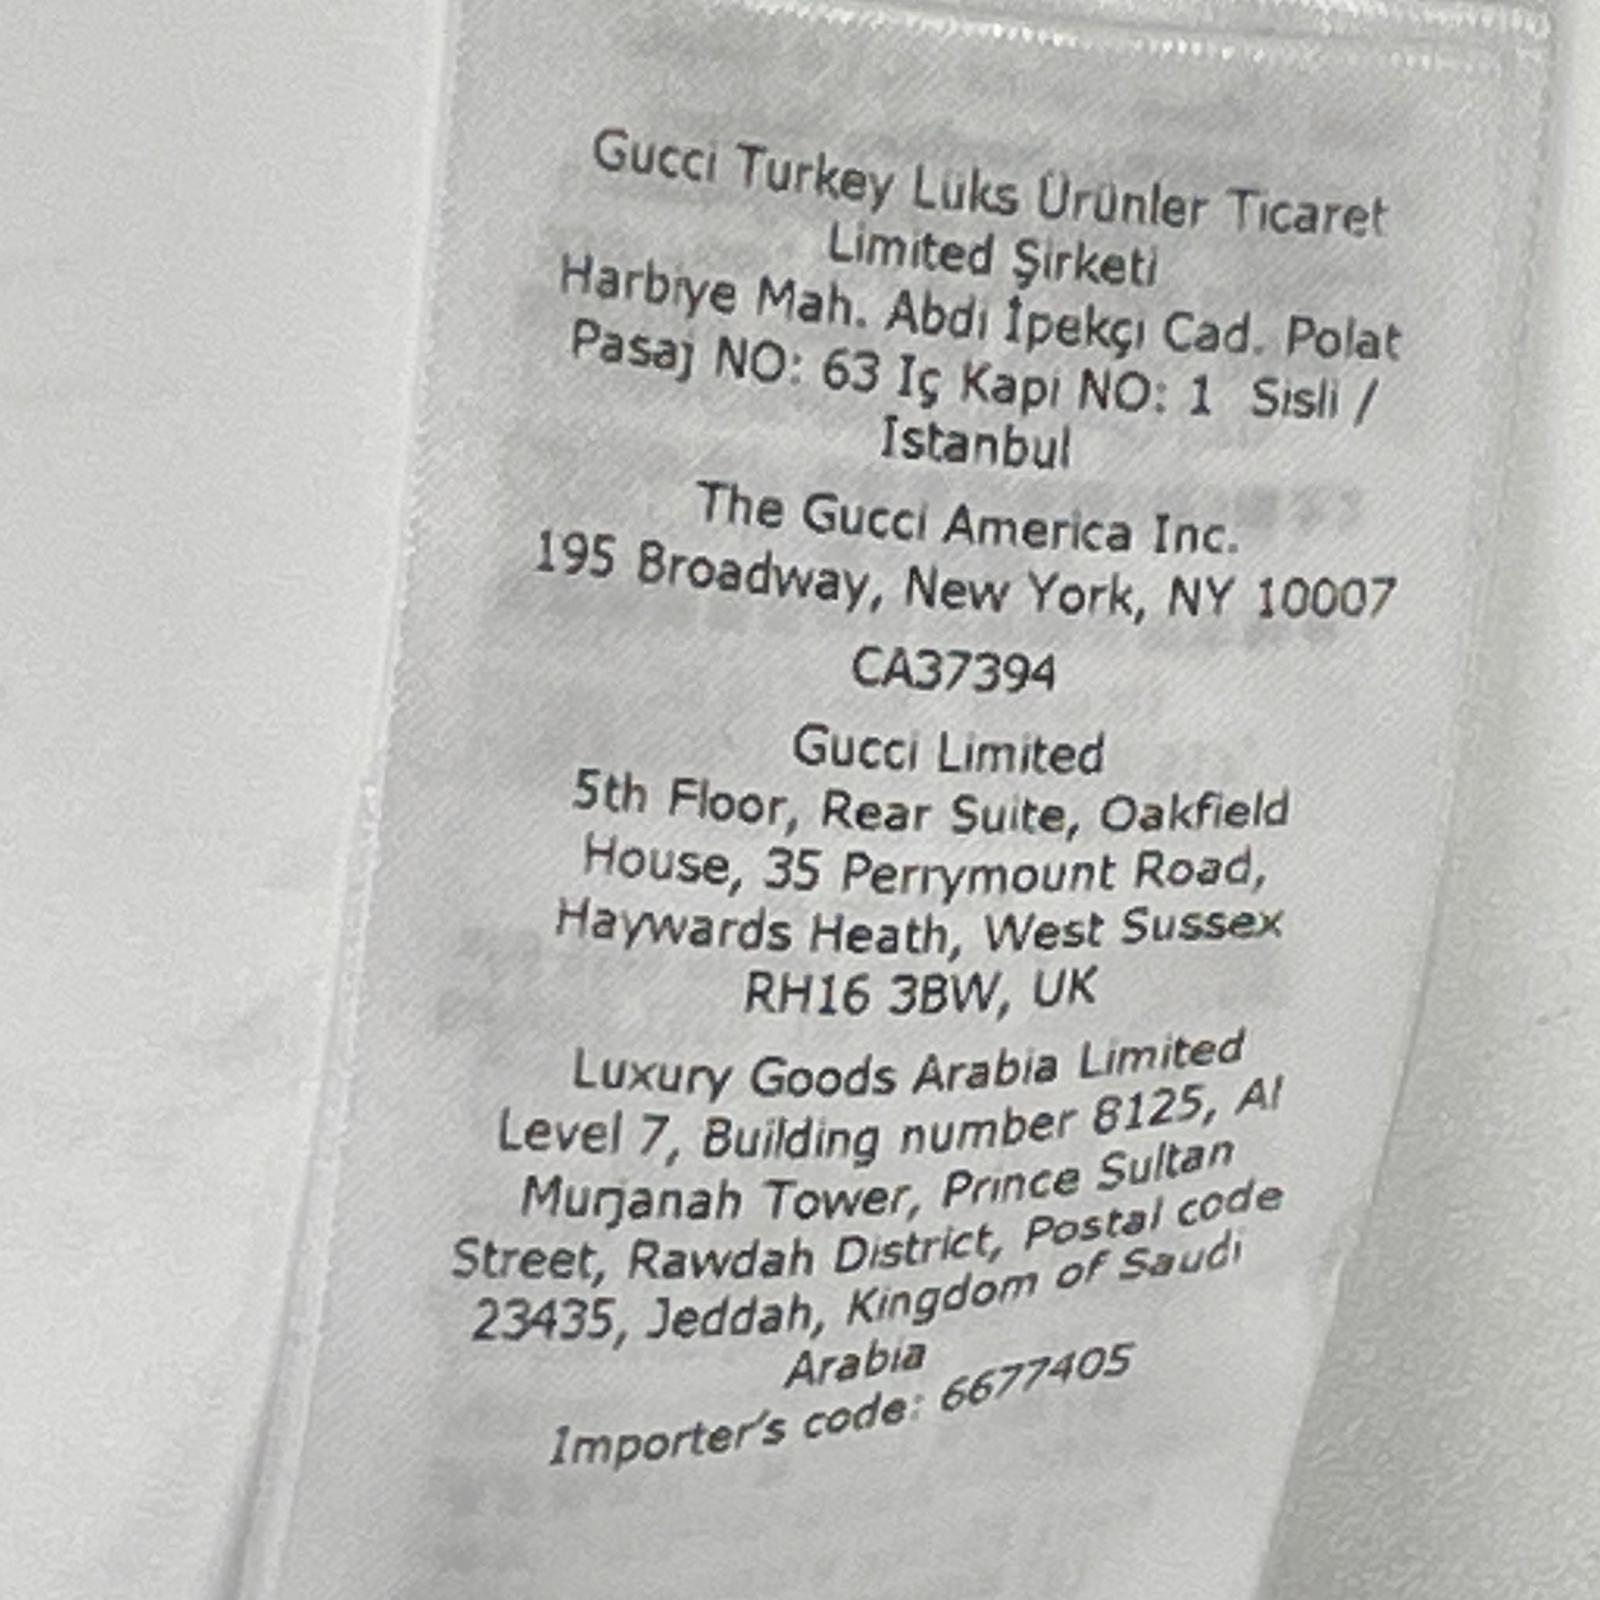 Gucci Turkey Lüks Ürünler Ticaret
Limited Şirketi
Harbiye Mah. Abdi İpekçi Cad. Polat
Pasaj NO: 63 Iç Kapi NO: 1 Sisli /
Istanbul
The Gucci America Inc.
195 Broadway, New York, NY 10007
CA37394
Gucci Limited
5th Floor, Rear Suite, Oakfield
House, 35 Perrymount Road,
Haywards Heath, West Sussex
RH16 3BW, UK
Luxury Goods Arabia Limited
Level 7, Building number 8125, Al
Murjanah Tower, Prince Sultan
Street, Rawdah District, Postal code
23435, Jeddah, Kingdom of Saudi
Arabia
Importer's code: 6677405